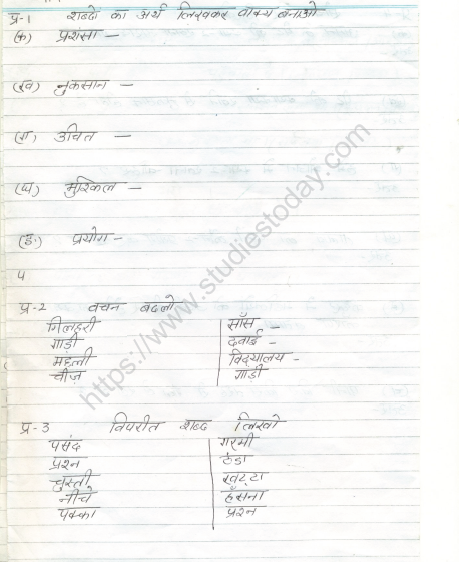 प्र-1 शब्दों का अर्थ लिखकर वाक्य बनाओ
(क) प्रशंसा -
(ख) नुकसान -
(ग) उचित -
(घ) मुश्किल -
(ङ) प्रयोग -
५
प्र-2 वचन बदलो
गिलहरी साँस -
गाड़ी दवाई -
मछली विद्यालय -
चीज़ गाडी
प्र-3 विपरीत शब्द लिखो
पसंद गरमी
प्रश्न ठंडा
चुस्ती खट्टा
नीचे हँसना
पक्का प्रश्न
https://www.studiestoday.com